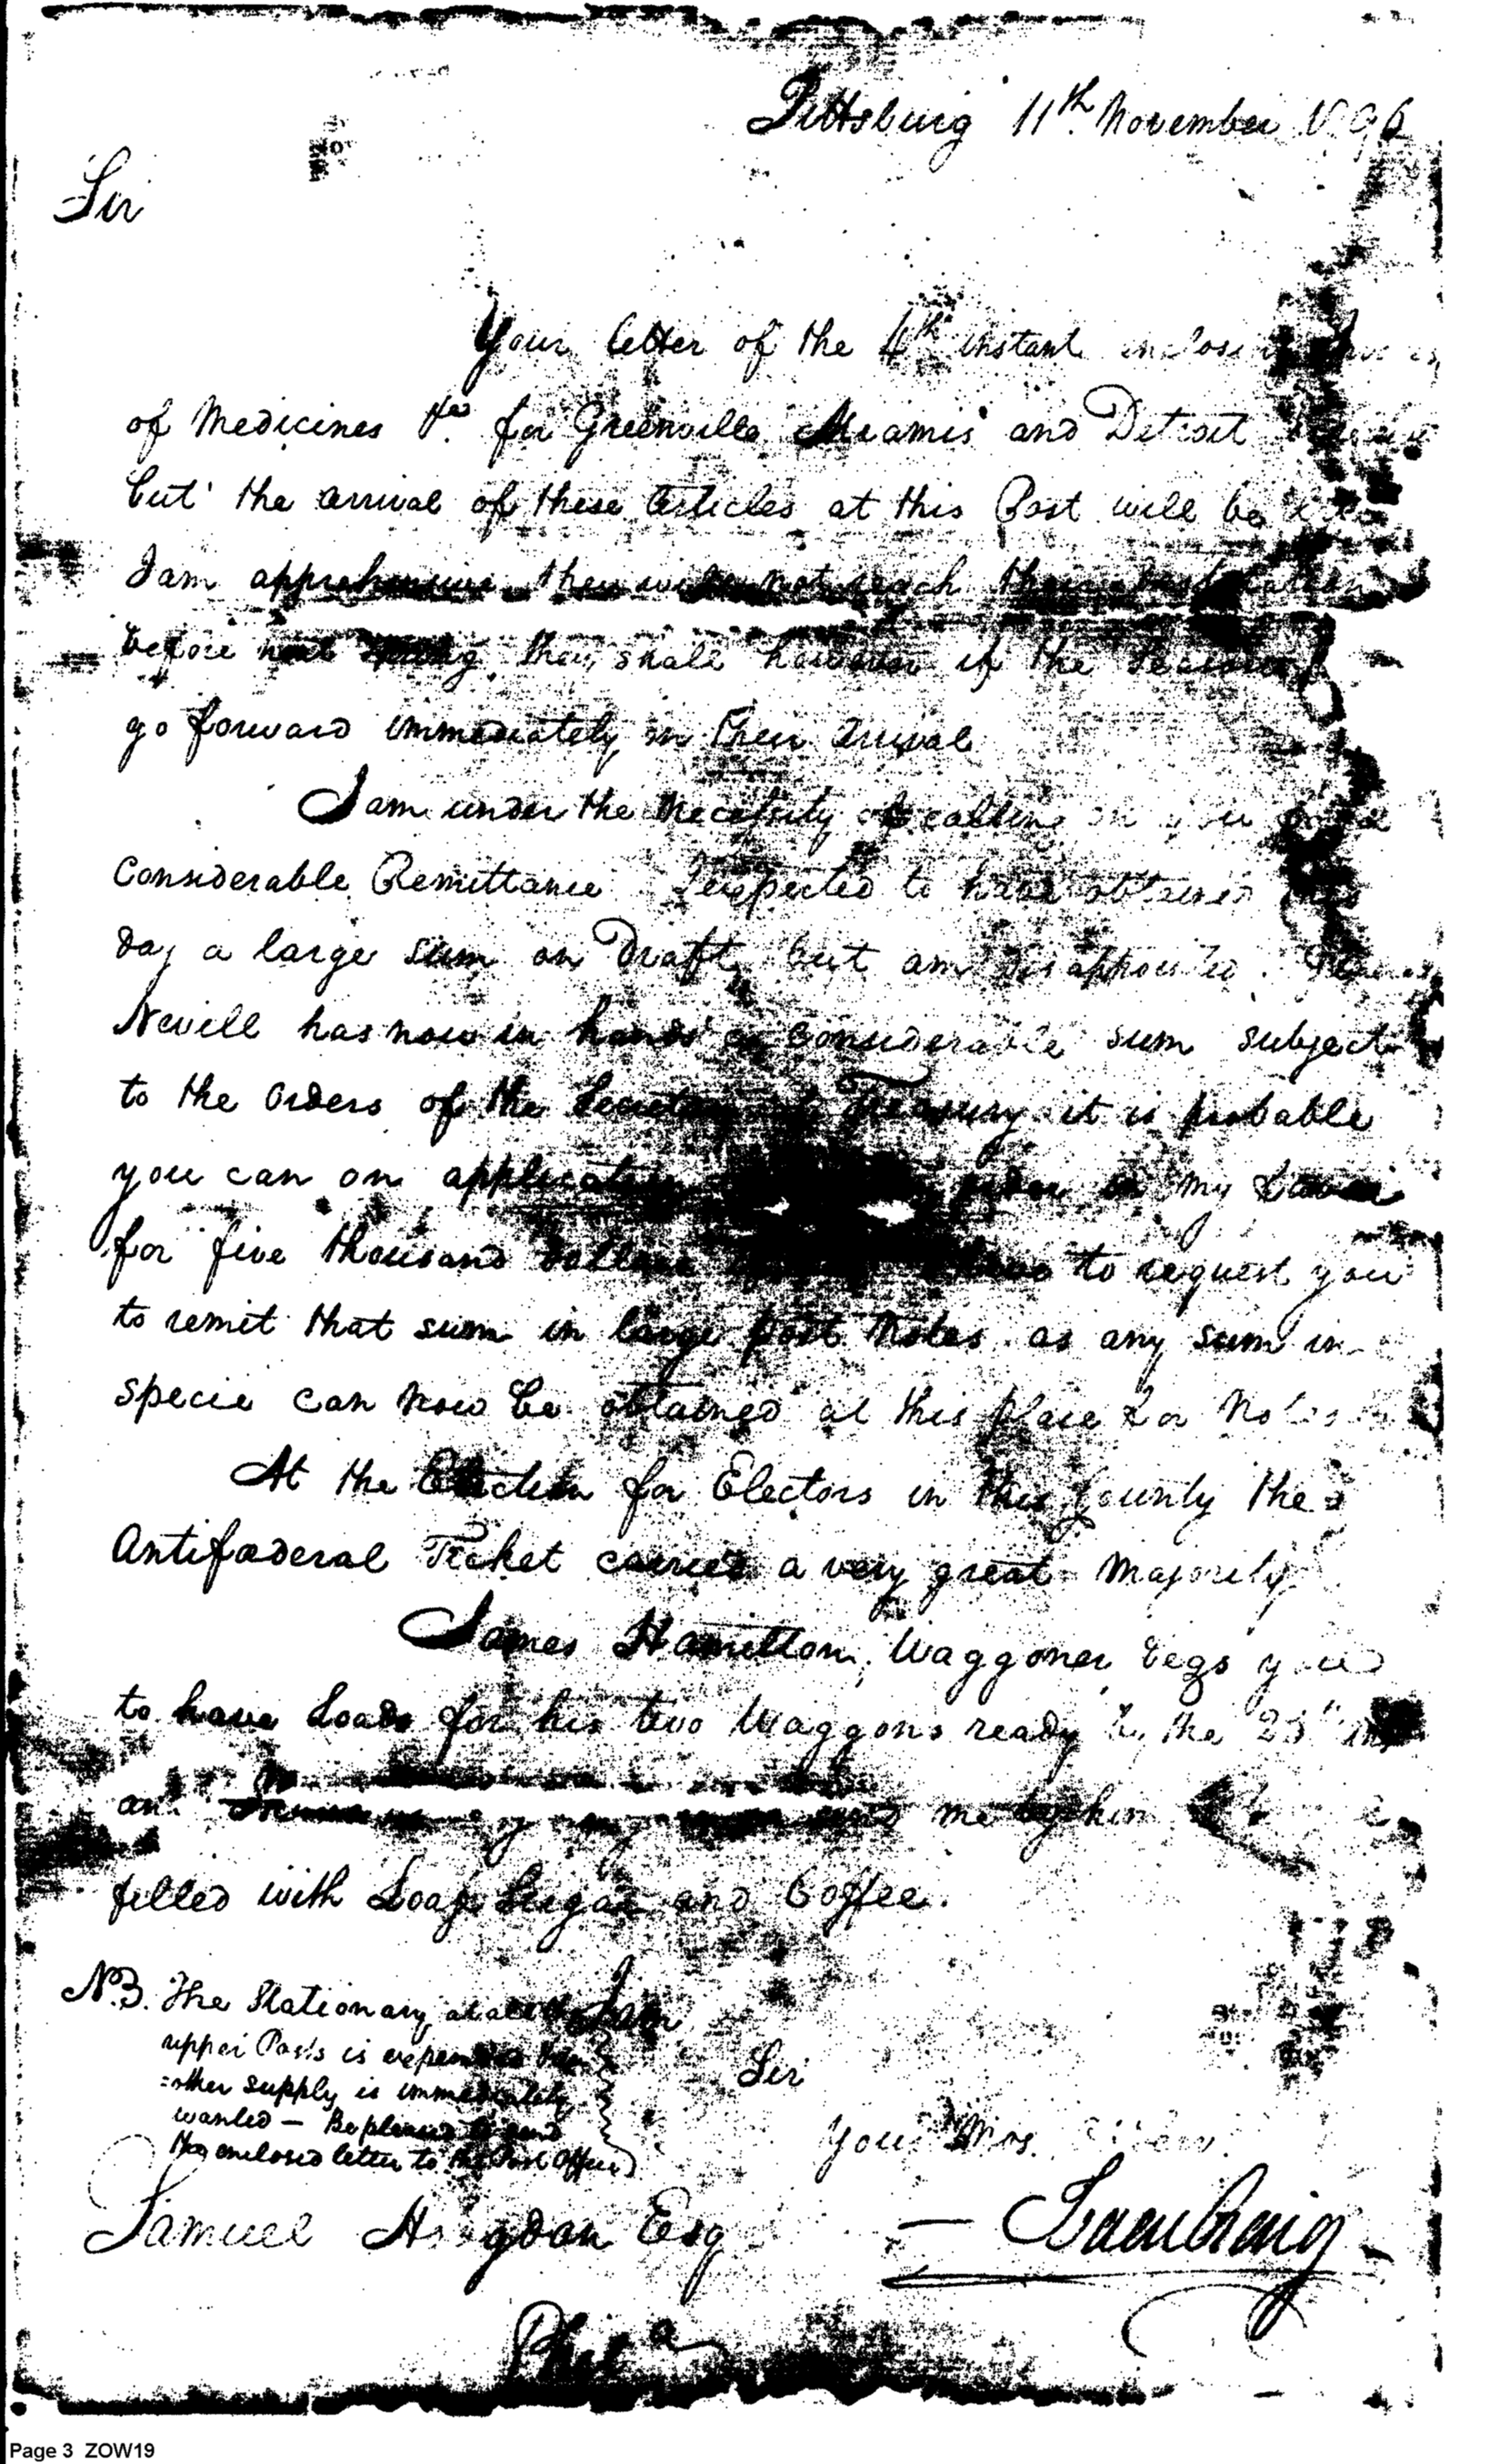 Pittsburg 11th November 1796
Sir
Your letter of the 4th instant inclosing
of Medicines &ca. for Greenville Miamis and Detroit
but the arrival of these Articles at this Post will be
I am apprehensive they will not reach their destination
before next Spring they shall however if the Season
go forward immediately on their arrival
I am under the Necessity of calling on you for a
Considerable Remittance I expected to have obtained this
day a large sum on Draft, but am disappointed.
Nevill has now in hands a Considerable sum subject
to the Orders of the Secretary Treasury it is probable
you can on application order in my favour
for five thousand Dollars to request you
to remit that sum in large post Notes as any sum in
specie can now be obtained at this place for Notes
At the Election for Electors in this County the
Antifœderal Ticket carried a very great Majority
James Hamilton, Waggoner begs you
to have Loads for his two Waggons ready by the
an me by him
filled with Loaf Sugar and Coffee.
N.B. The Stationary at all the
upper Posts is expended an
=other supply is immediately
wanted — Be pleased to send
the enclosed letter to the Post Office
I am
Sir
Your Mos.
Samuel Hodgdon Esq
— Isaac Craig
Phila
Page 3 ZOW19